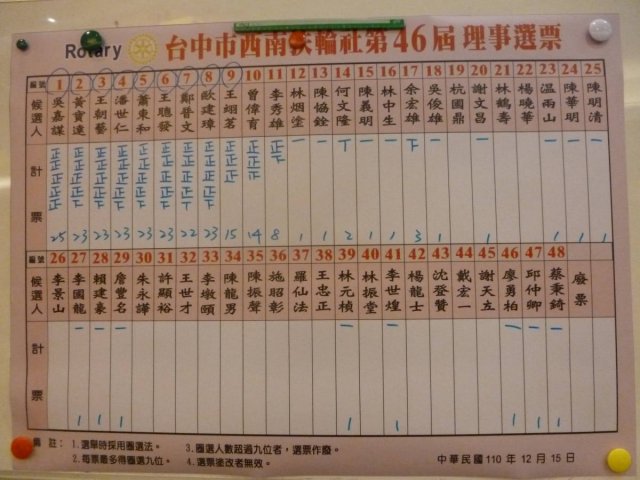 Rotary 台中市西南扶輪社第46屆理事選票
編號 1 2 3 4 5 6 7 8 9 10 11 12 13 14 15 16 17 18 19 20 21 22 23 24 25
候選人 吳嘉謀 黃寶達 王朝藝 潘世仁 蕭東和 王聰發 鄭晉文 歐建璋 王翊茗 曾偉育 李秀雄 林烟塗 陳協銓 何文隆 陳義明 林中生 余宏雄 吳俊雄 杭國鼎 謝文昌 林鶴壽 楊曉華 温雨山 陳華明 陳明清
計票
25 23 23 23 23 23 22 23 15 14 8 1 1 2 1 1 3 1 1 1 1 1
編號 26 27 28 29 30 31 32 33 34 35 36 37 38 39 40 41 42 43 44 45 46 47 48
候選人 李景山 李國龍 賴建豪 詹豐名 朱永譁 許顯裕 王世才 李墩頤 陳龍男 陳振聲 施昭彰 羅仙法 王忠正 林元楨 林振堂 李世煌 楊龍士 沈登贊 戴宏一 謝天左 廖勇柏 邱仲卿 蔡秉錡 廢票
計票
1 1 1 1 1 1 1 1
備註： 1.選舉時採用圈選法。 3.圈選人數超過九位者，選票作廢。
2.每票最多得圈選九位。 4.選票塗改者無效。 中華民國110年12月15日